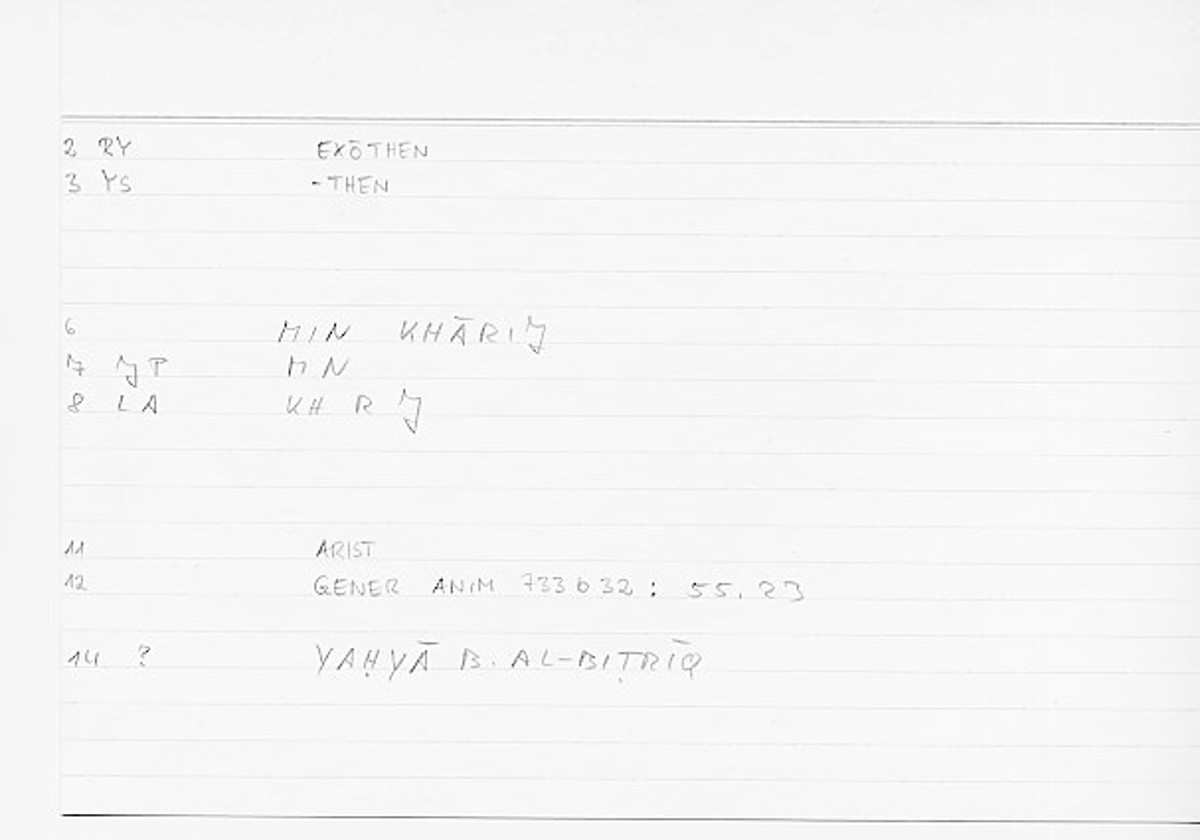 2 RY EXŌTHEN
3 YS -THEN
6 MIN KHĀRIJ
7 JP MN
8 LA KH R J
11 ARIST
12 GENER ANIM 733 b 32 : 55. 23
14 ? YAḤYĀ B. AL-BIṬRĪQ